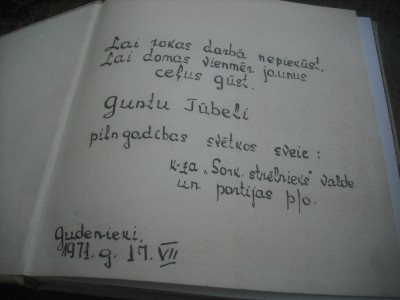 Lai rokas darbā nepiekūst.
Lai domas vienmēr jaunus
ceļus gūst.
Guntu Tūbeli
pilngadības svētkos sveic:
k-za „Sark. strēlnieks" valde
un partijas p/o.
Gudenieki.
1971. g. 17. VII